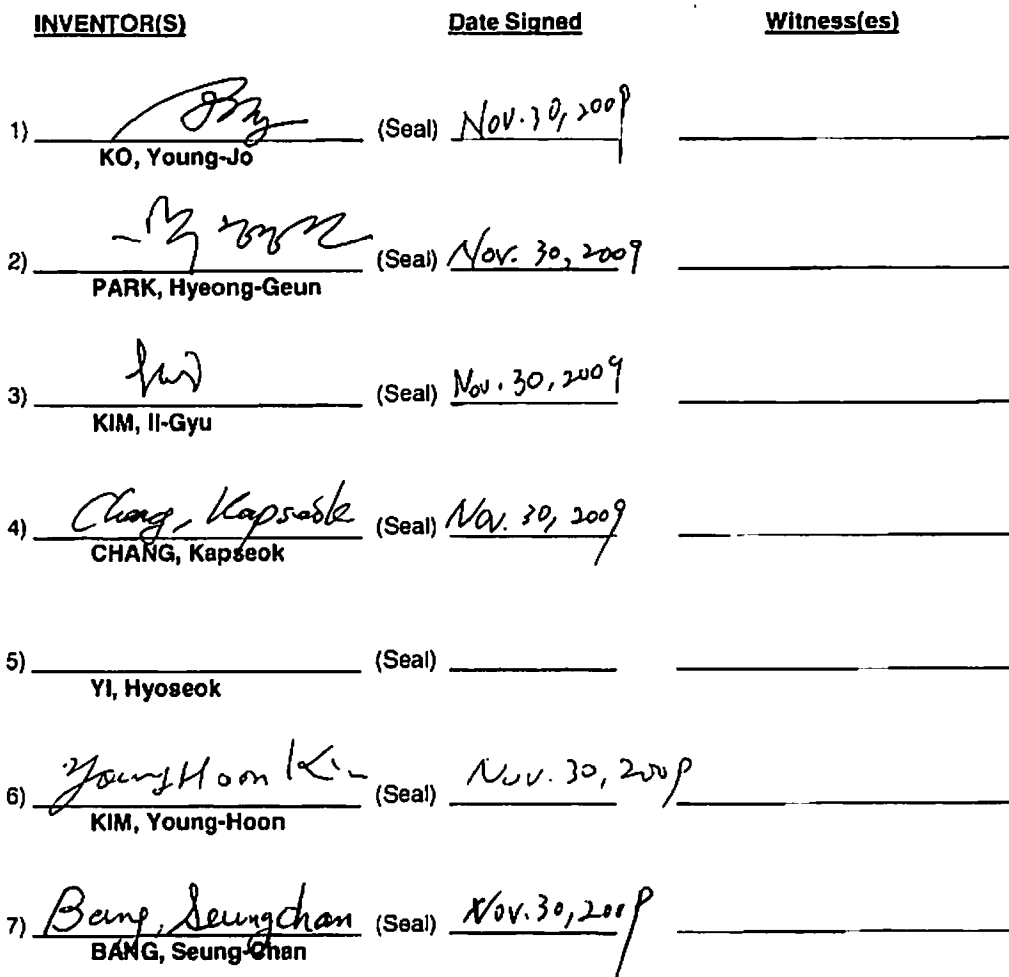 INVENTOR(S) Date Signed Witness(es)
1) (Seal) Nov. 30, 2009
KO, Young-Jo
2) (Seal) Nov. 30, 2009
PARK, Hyeong-Geun
3) (Seal) Nov. 30, 2009
KIM, Il-Gyu
4) Chang, Kapseok (Seal) Nov. 30, 2009
CHANG, Kapseok
5) (Seal)
YI, Hyoseok
6) Young Hoon Kim (Seal) Nov. 30, 2009
KIM, Young-Hoon
7) Bang, Seungchan (Seal) Nov. 30, 2009
BANG, Seung-Chan